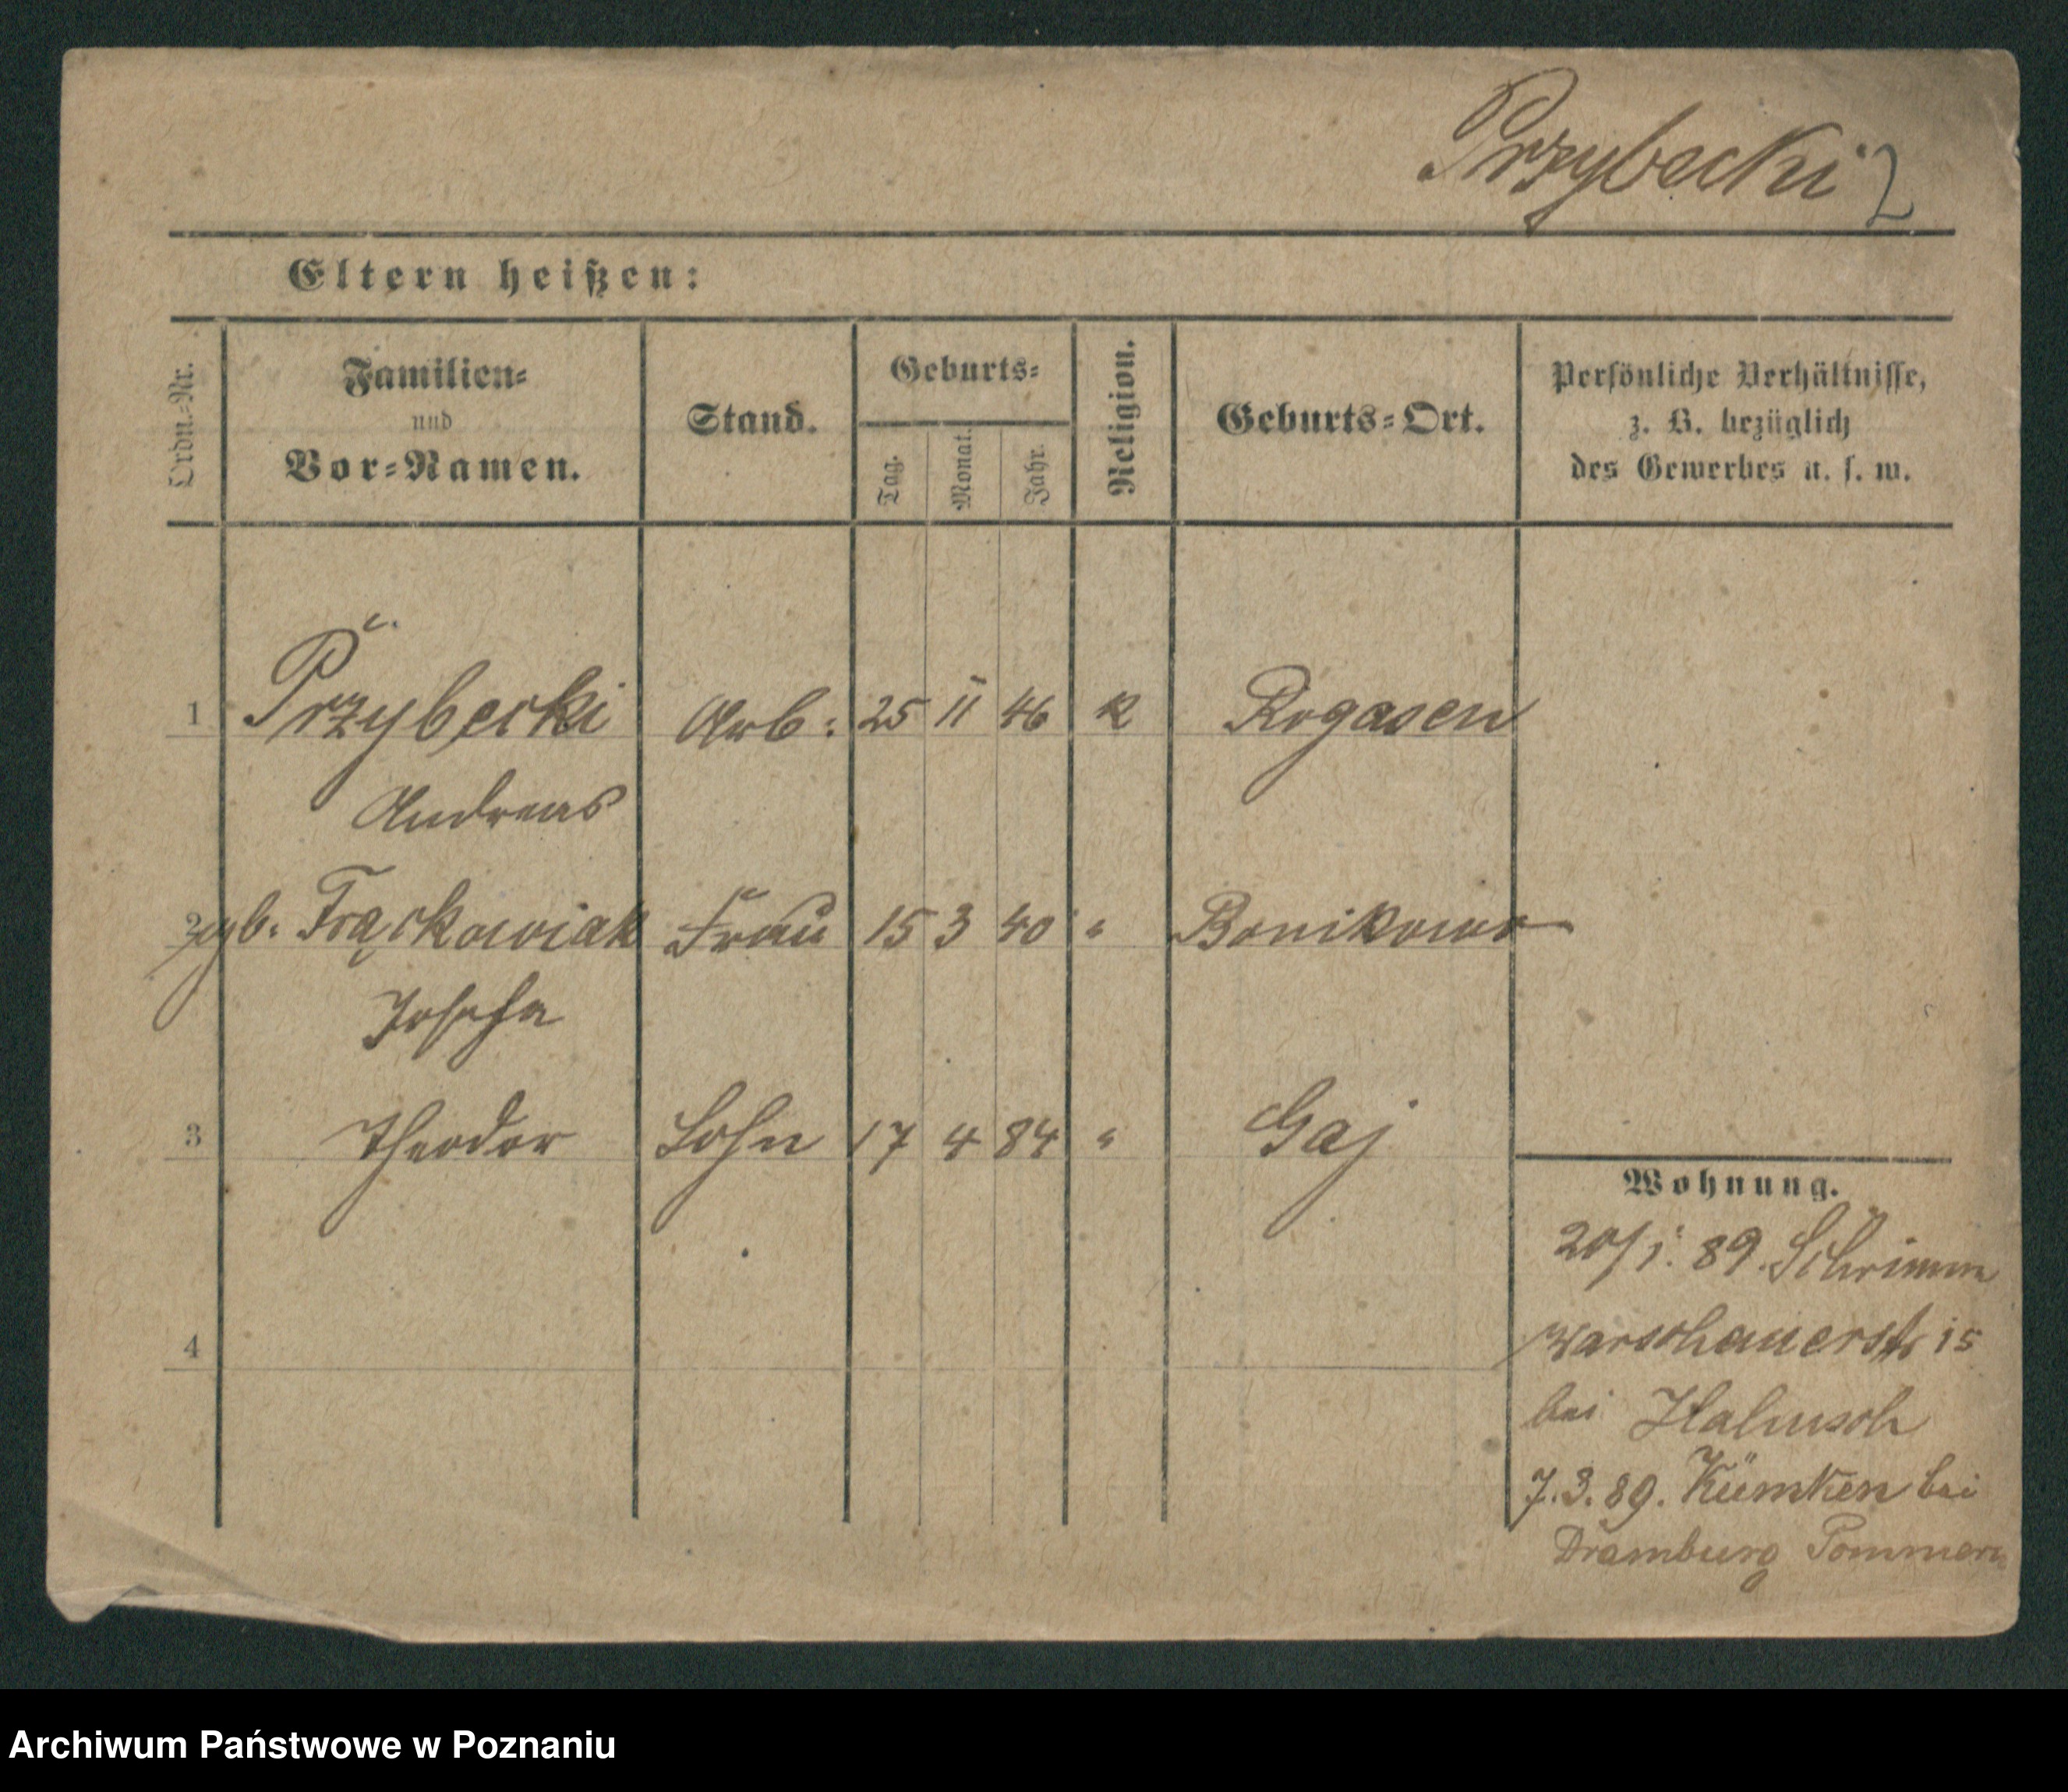 Przybecki 2
Eltern heißen:
Ordn.-Nr.
Familien-
und
Vor-Namen.
Stand.
Geburts-
Tag.
Monat.
Jahr.
Religion.
Geburts-Ort.
Persönliche Verhältnisse,
z. B. bezüglich
des Gewerbes u. s. w.
1 Przybecki Arb: 25 11 46 K Rogasen
Andreas
2 geb. Frąckowiak Frau 15 3 40 " Bonikowo
Josepha
3 Theodor Sohn 17 4 84 " Gaj
4
Wohnung.
20/1. 89. Schrimm
Warschauerstr 15
bei
7.3.89. Kümken bei
Dramburg Pommern
Archiwum Państwowe w Poznaniu